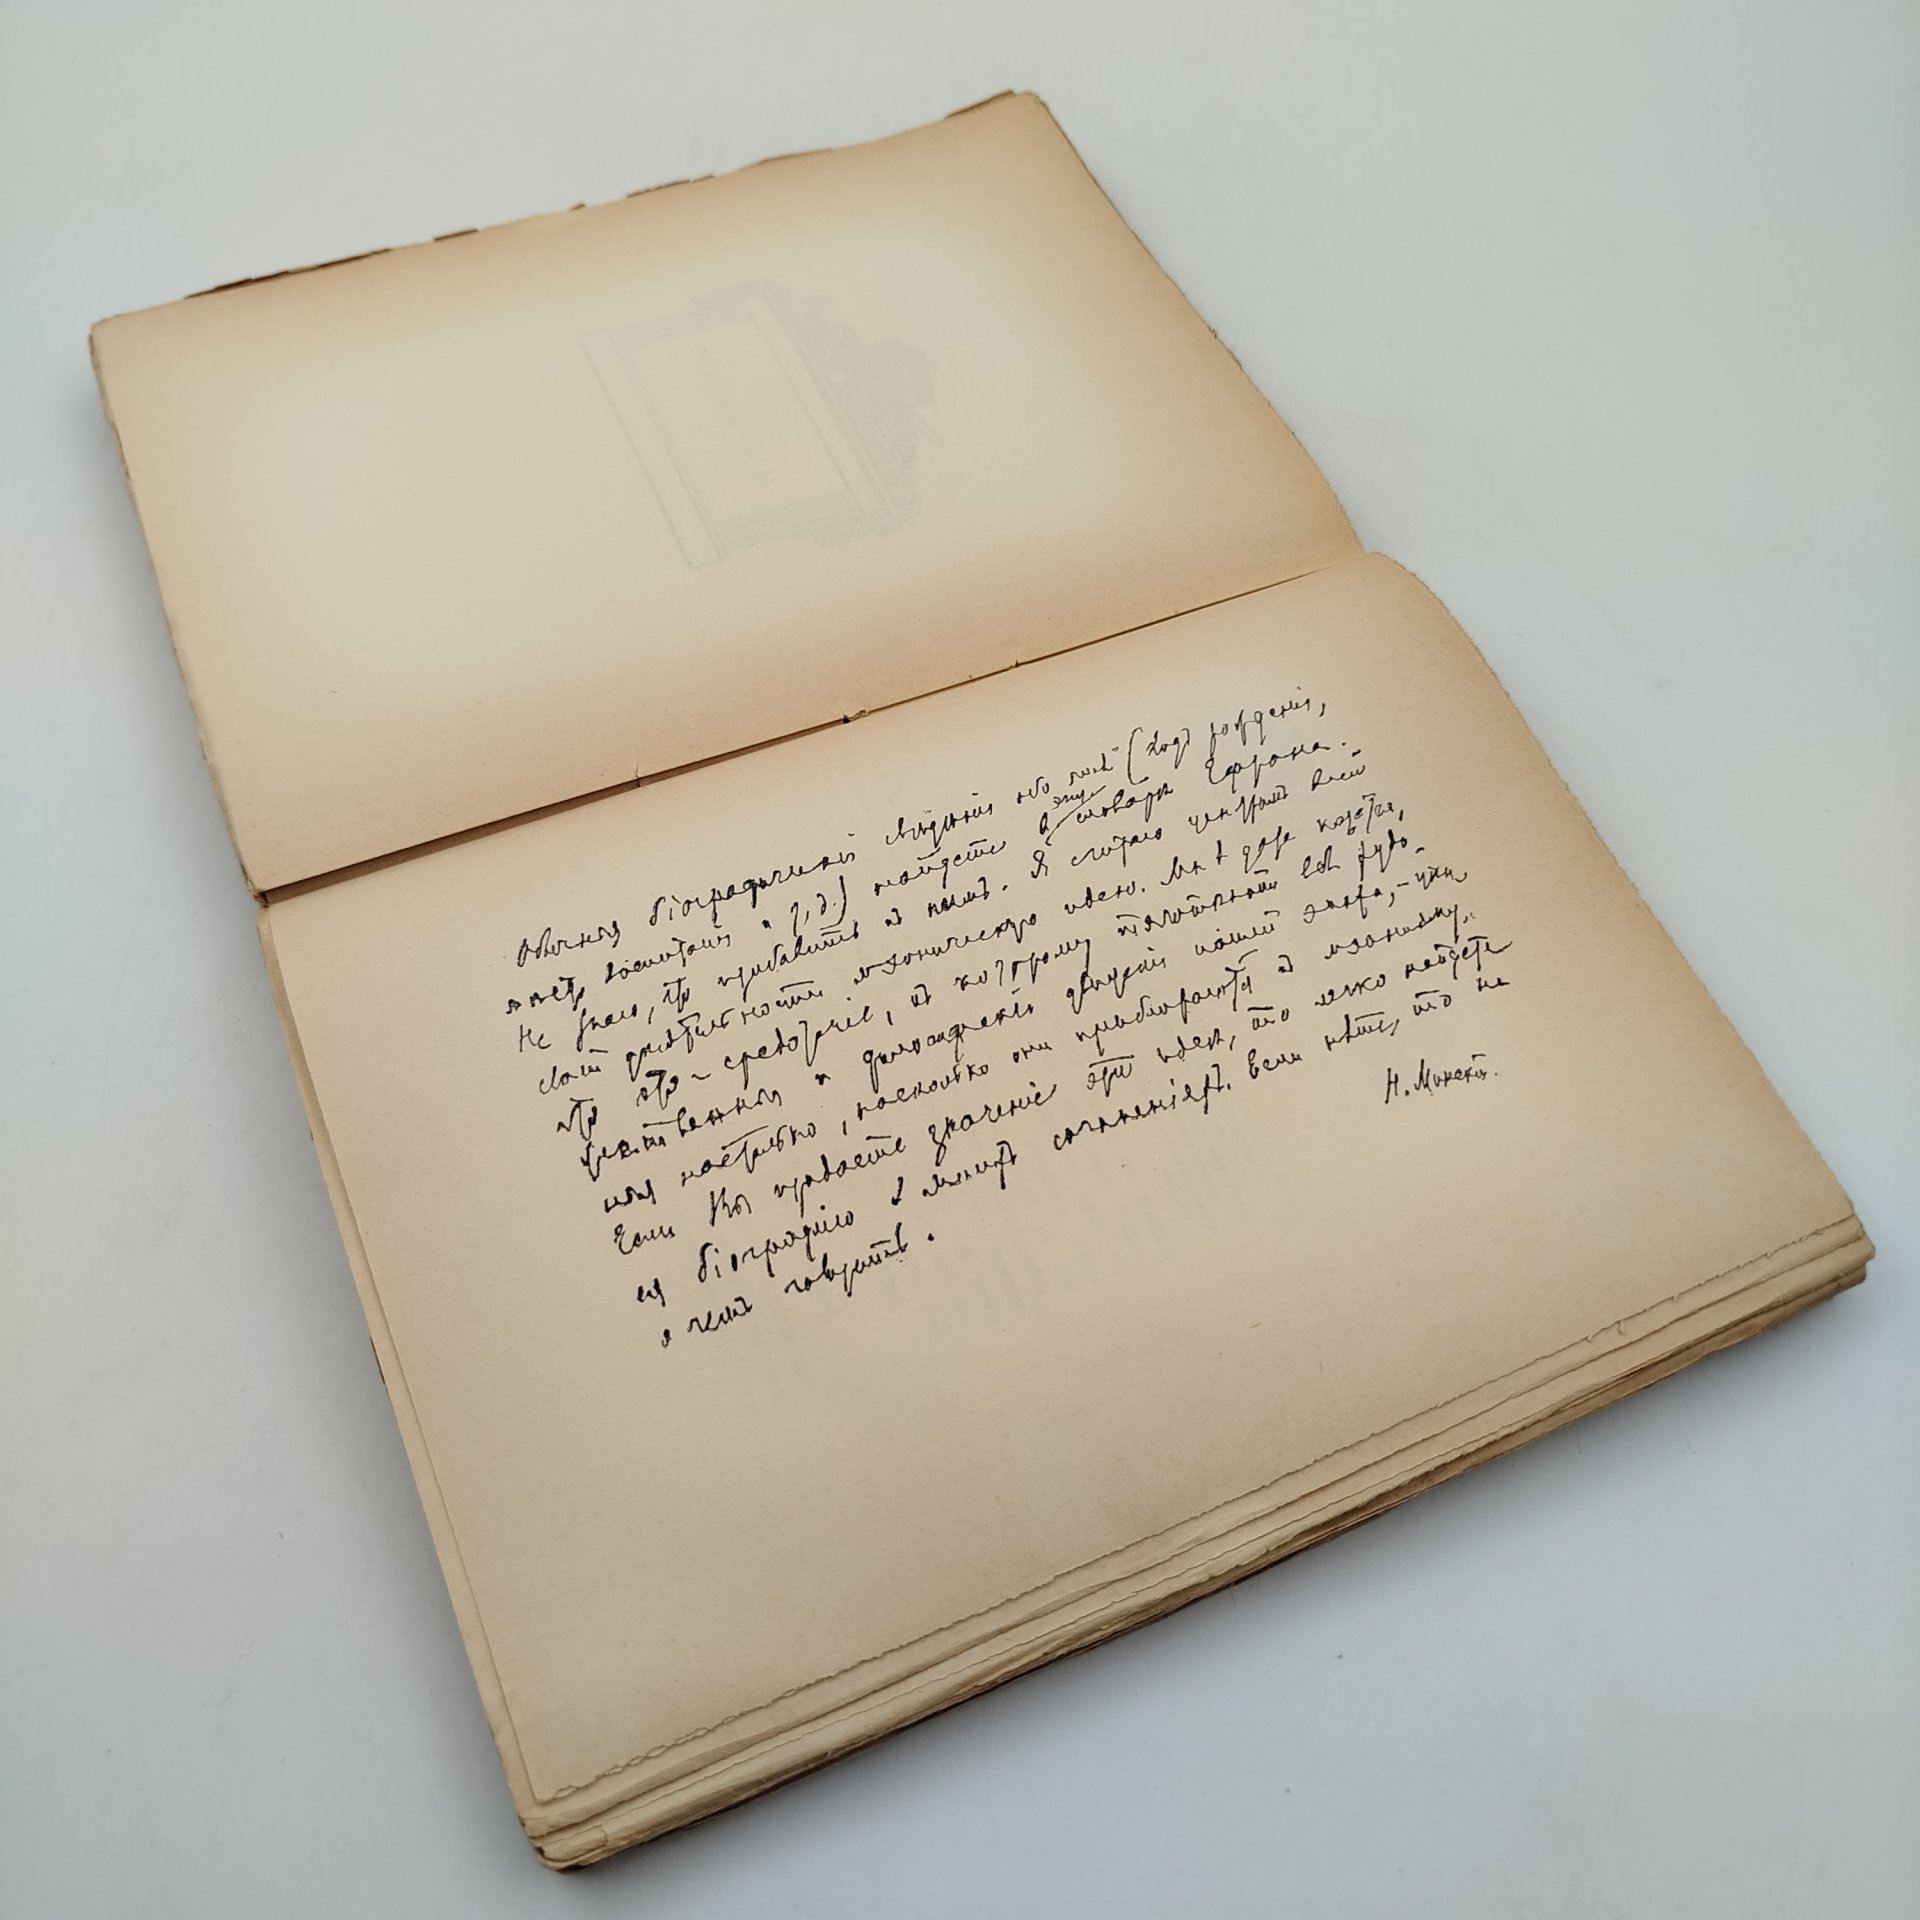 Обычныя біографическія свѣдѣнія обо мнѣ (годъ рожденія,
воспитанія и т. д.) найдете въ энц. словарѣ Ефрона.
Не знаю, что прибавить къ нимъ. Я считаю центромъ всей
своей дѣятельности мэоническую идею. Мнѣ даже кажется,
что это – средоточіе, къ которому тяготѣютъ всѣ худо-
жественныя и философскія движенія нашей эпохи, – цѣн-
ныя настолько, насколько они приближаются къ мэонизму.
Если Вы придаете значеніе этой идеѣ, то легко найдете
ея біографію въ моихъ сочиненіяхъ. Если нѣтъ, то не
о чемъ говорить.
Н. Минскій.